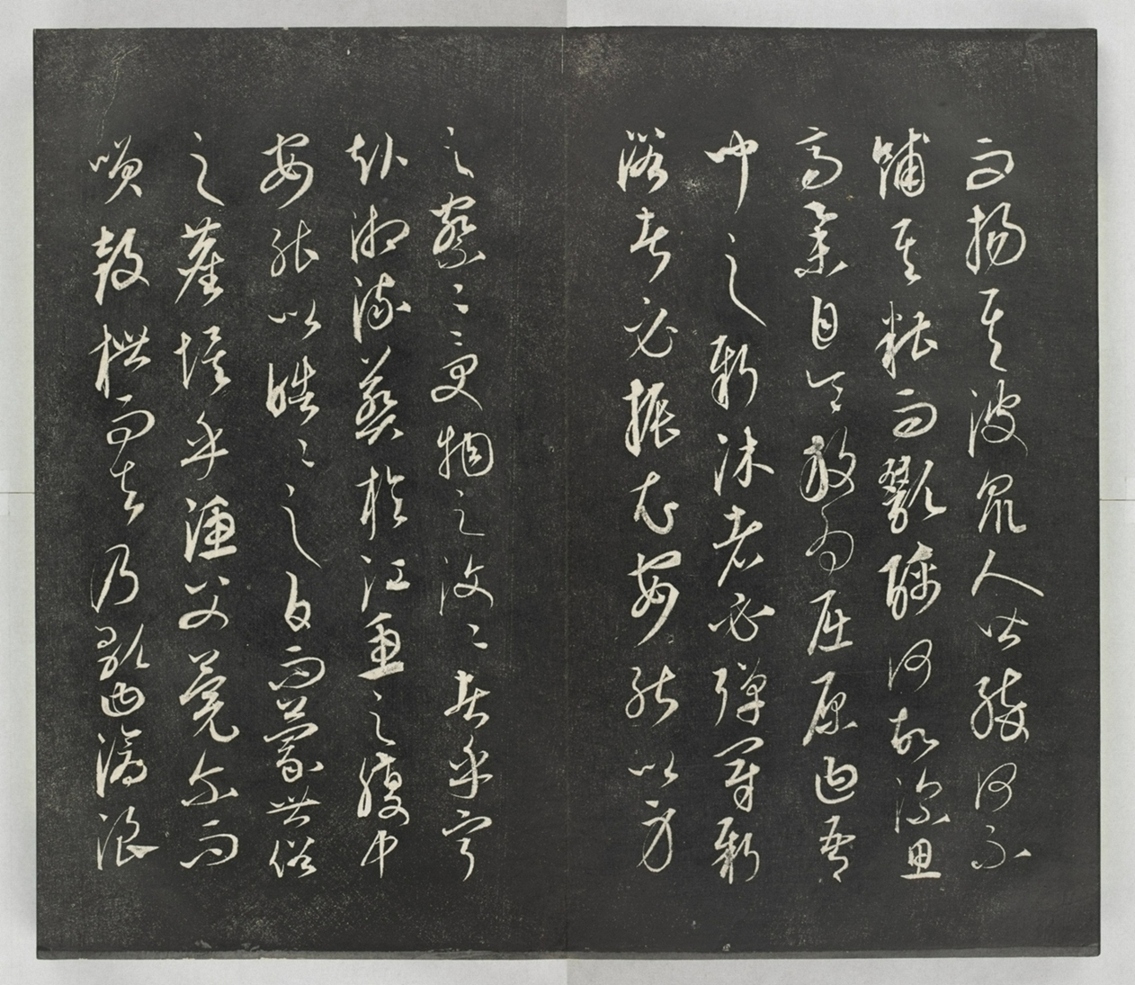 而揚其波眾人皆醉何不
餔其糟而歠醨何故深思
高舉自令放為屈原曰吾
聞之新沐者必彈冠新
浴者必振衣安能以身
之察〻受物之汶〻者乎寧
赴湘流葬於江魚之腹中
安能以皓〻之白而蒙世俗
之塵埃乎漁父莞爾而
笑鼓枻而去乃歌曰滄浪